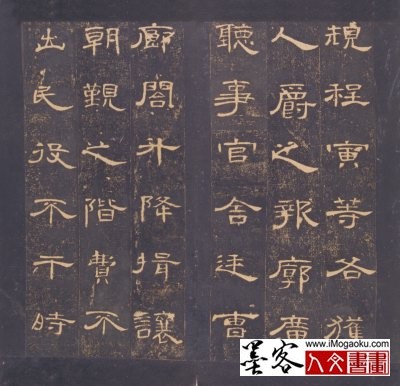 規程寅等各獲
人爵之報廓廣
聽事官舍廷曹
廊閣升降揖讓
朝覲之階費不
出民役不干時
墨客
www.iMogaoku.com
人文書畫